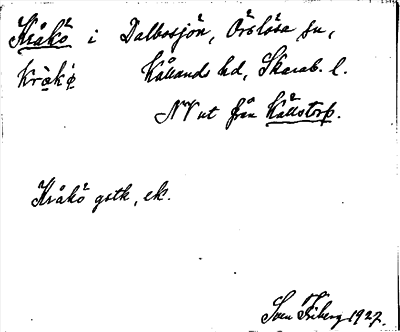 Kråkö i Dalbosjön, Örslösa sn,
Kråkö Kållands hd, Skarab. l.
NV ut från Källstorp.
Kråkö gstk, ek.
Sven Friberg 1927.